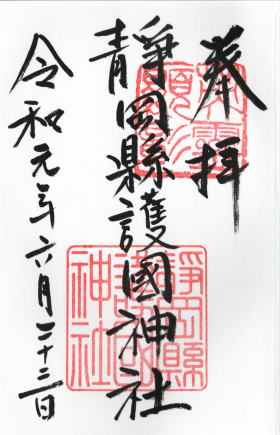 奉拝
靜岡縣護國神社
令和元年六月二十三日
靜岡縣護國神社